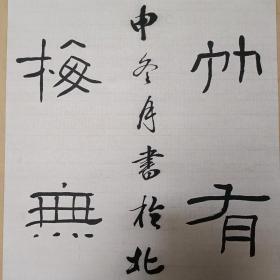 竹有
申冬月書於北
梅無